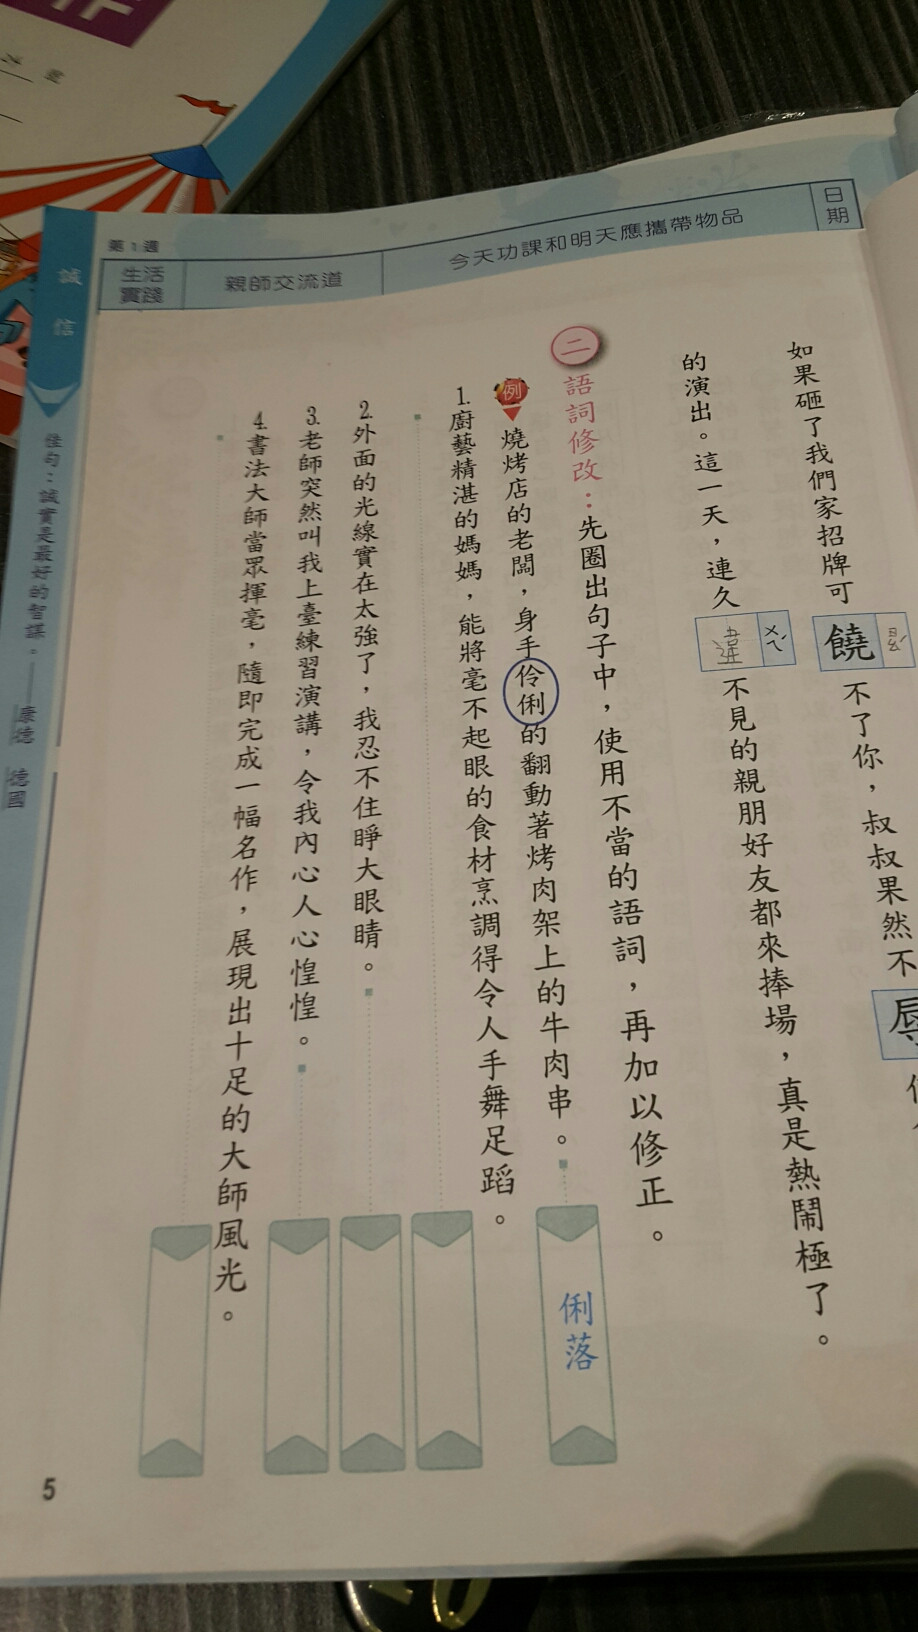 第1週
生活實踐
親師交流道
今天功課和明天應攜帶物品
日期
如果砸了我們家招牌可饒不了你，叔叔果然不辱
的演出。這一天，連久違ㄨㄟˊ不見的親朋好友都來捧場，真是熱鬧極了。
二 語詞修改：先圈出句子中，使用不當的語詞，再加以修正。
例 燒烤店的老闆，身手伶俐的翻動著烤肉架上的牛肉串。 俐落
1.廚藝精湛的媽媽，能將毫不起眼的食材烹調得令人手舞足蹈。
2.外面的光線實在太強了，我忍不住睜大眼睛。
3.老師突然叫我上臺練習演講，令我內心人心惶惶。
4.書法大師當眾揮毫，隨即完成一幅名作，展現出十足的大師風光。
誠信
佳句：誠實是最好的智謀。——康德 德國
5